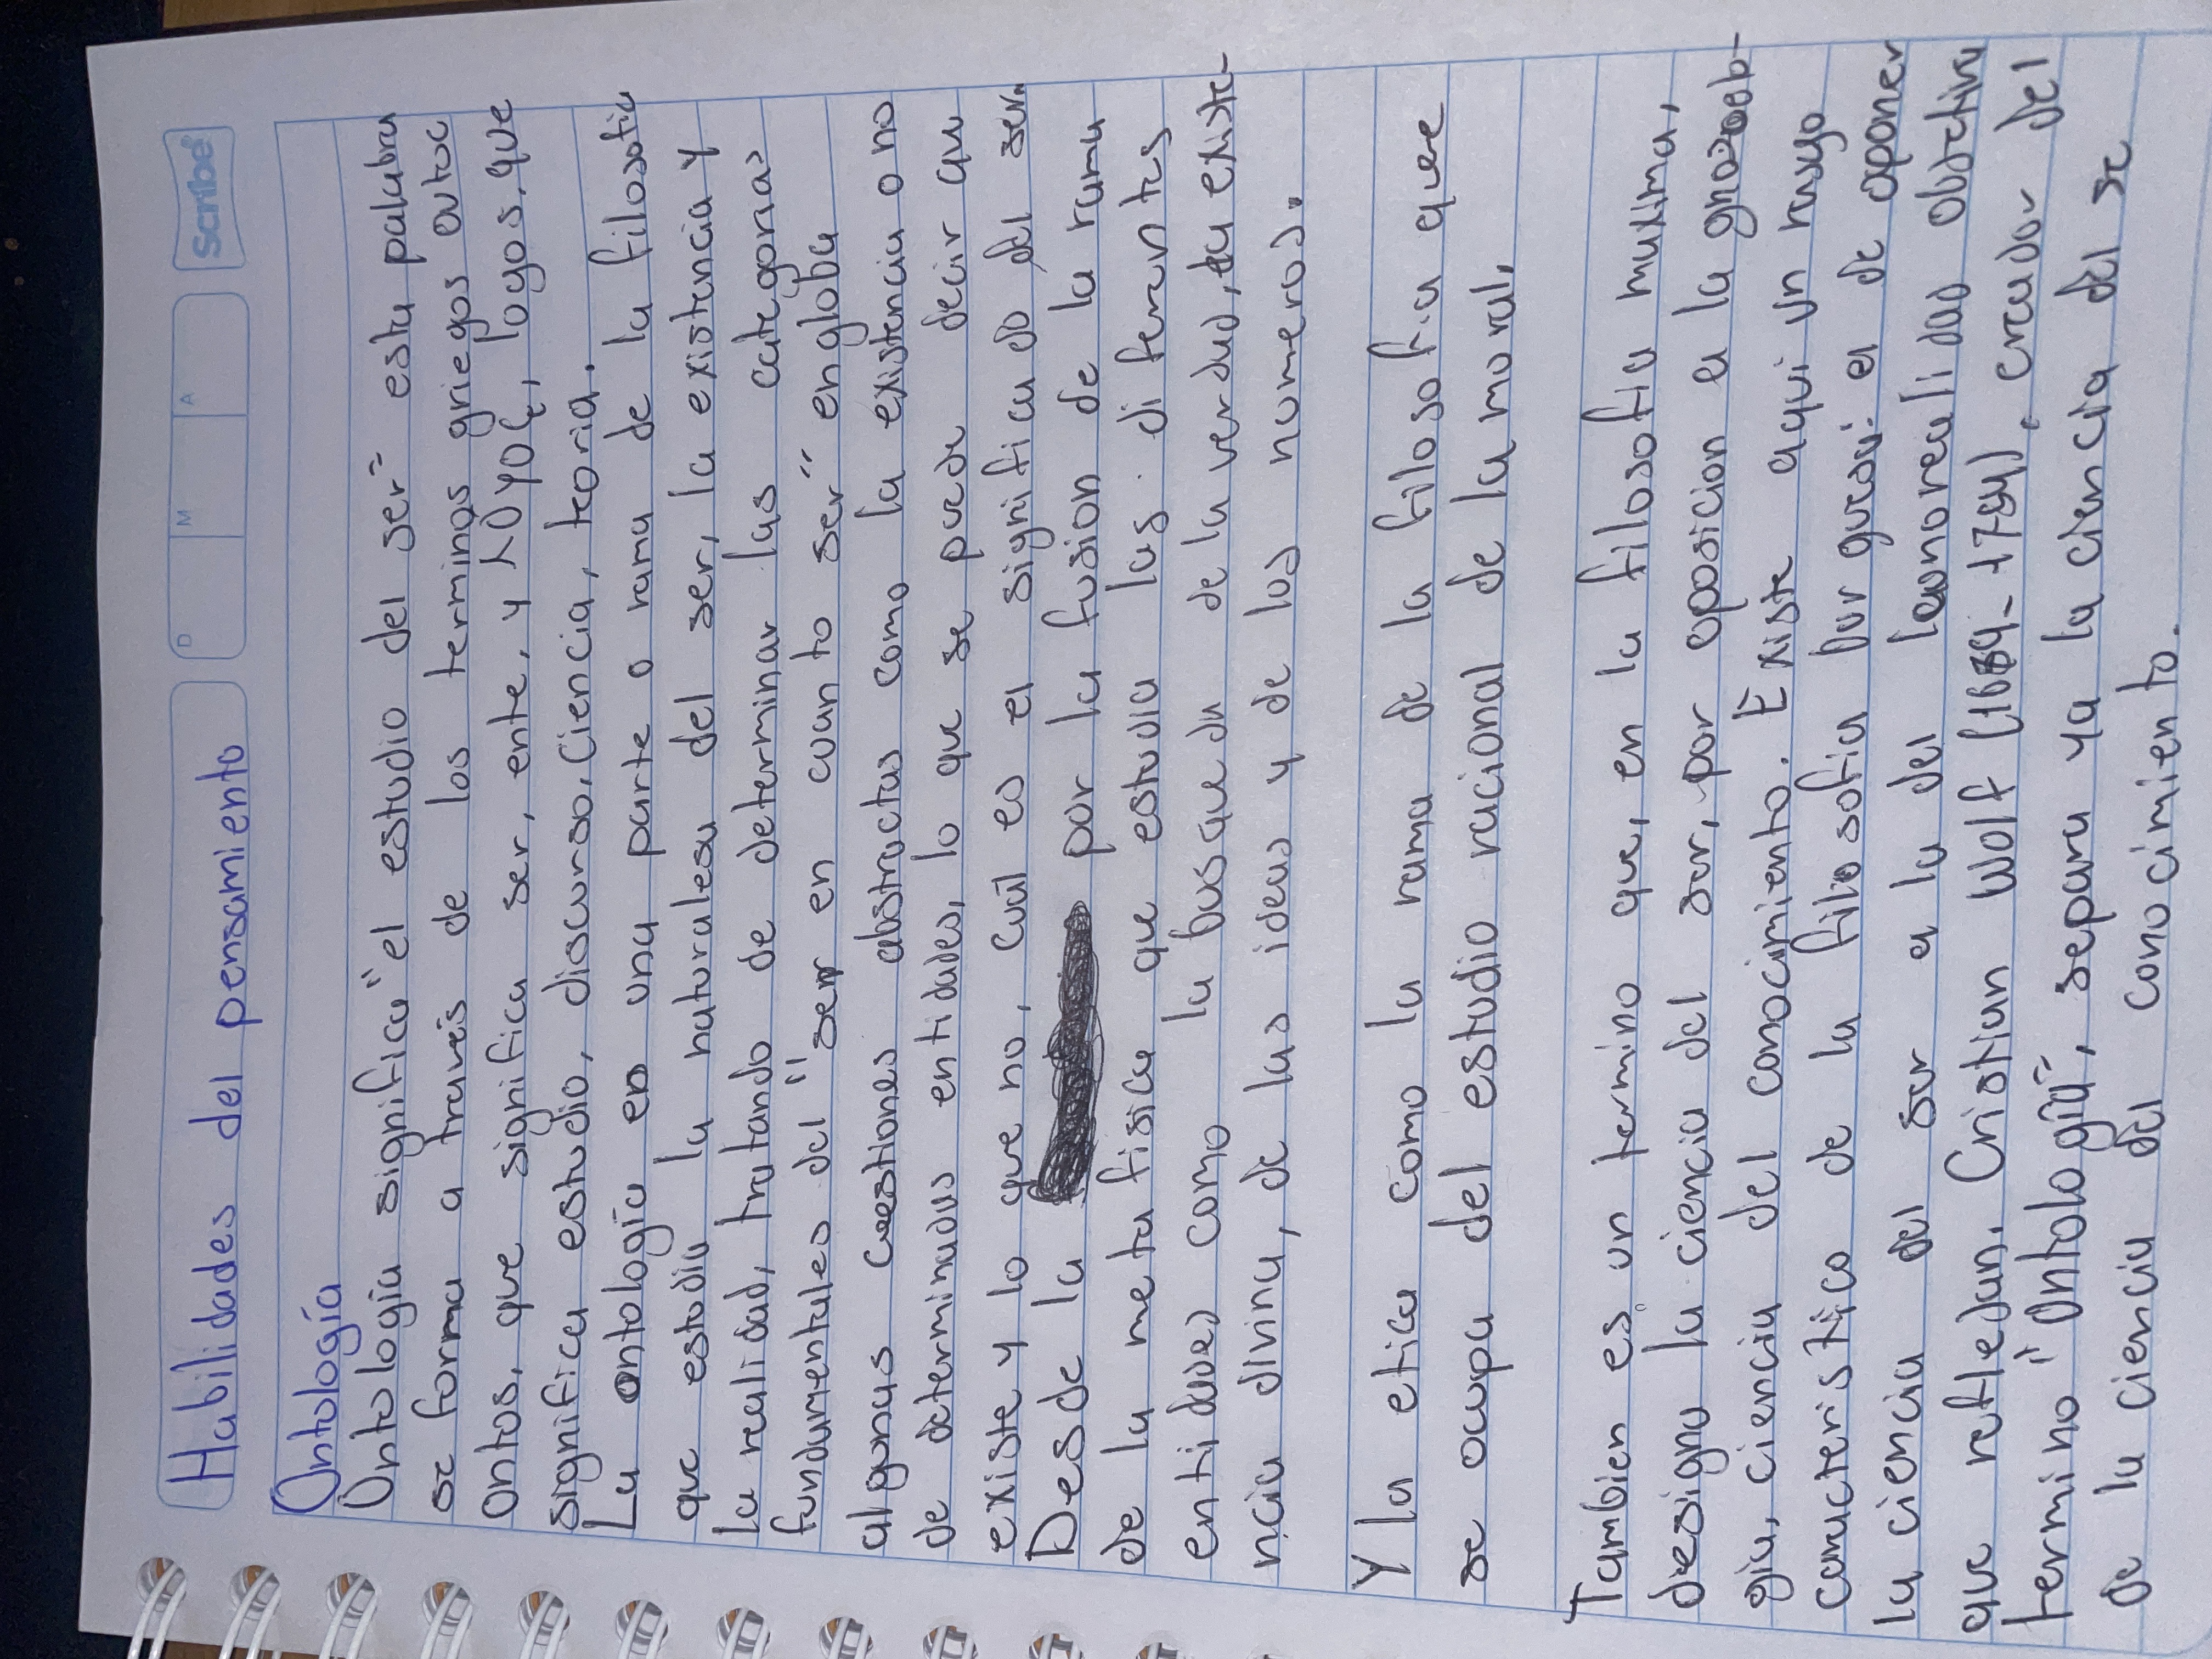 Habilidades del pensamiento
D M A
Scribe
Ontología
Ontología significa "el estudio del ser" esta palabra
se forma a través de los terminos griegos outoc
Ontos, que significa ser, ente, y λoyoς, logos, que
significa estudio, discurso, Ciencia, teoria.
La ontología es una parte o rama de la filosofia
que estudia la naturalesa del ser, la existencia y
la realidad, tratando de determinar las categorias
fundamentales del "ser en cuanto ser" engloba
algunas cuestiones abstractas como la existencia o no
de determinadas entidades, lo que se puede decir que
existe y lo que no, cual es el significado del ser.
Desde la por la fusion de la rama
de la meta fisica que estudia las diferentes
entidades como la busqueda de la verdad, la existe-
ncia divina, de las ideas y de los numeros.
Y la etica como la rama de la filosofia que
se ocupa del estudio racional de la moral.
Tambien es un termino que, en la filosofia maxima,
designa la ciencia del ser, por oposicion a la gnoseolo-
gia, ciencia del conocimiento. Existe aqui un rasgo
caracteristico de la filosofia burguesa: el de oponer
la ciencia del ser a la del realidad objetiva
que reflejan. Cristian Wolf (1679-1754), creador del
termino "Ontología", separa ya la ciencia del se
de la ciencia del conocimiento.